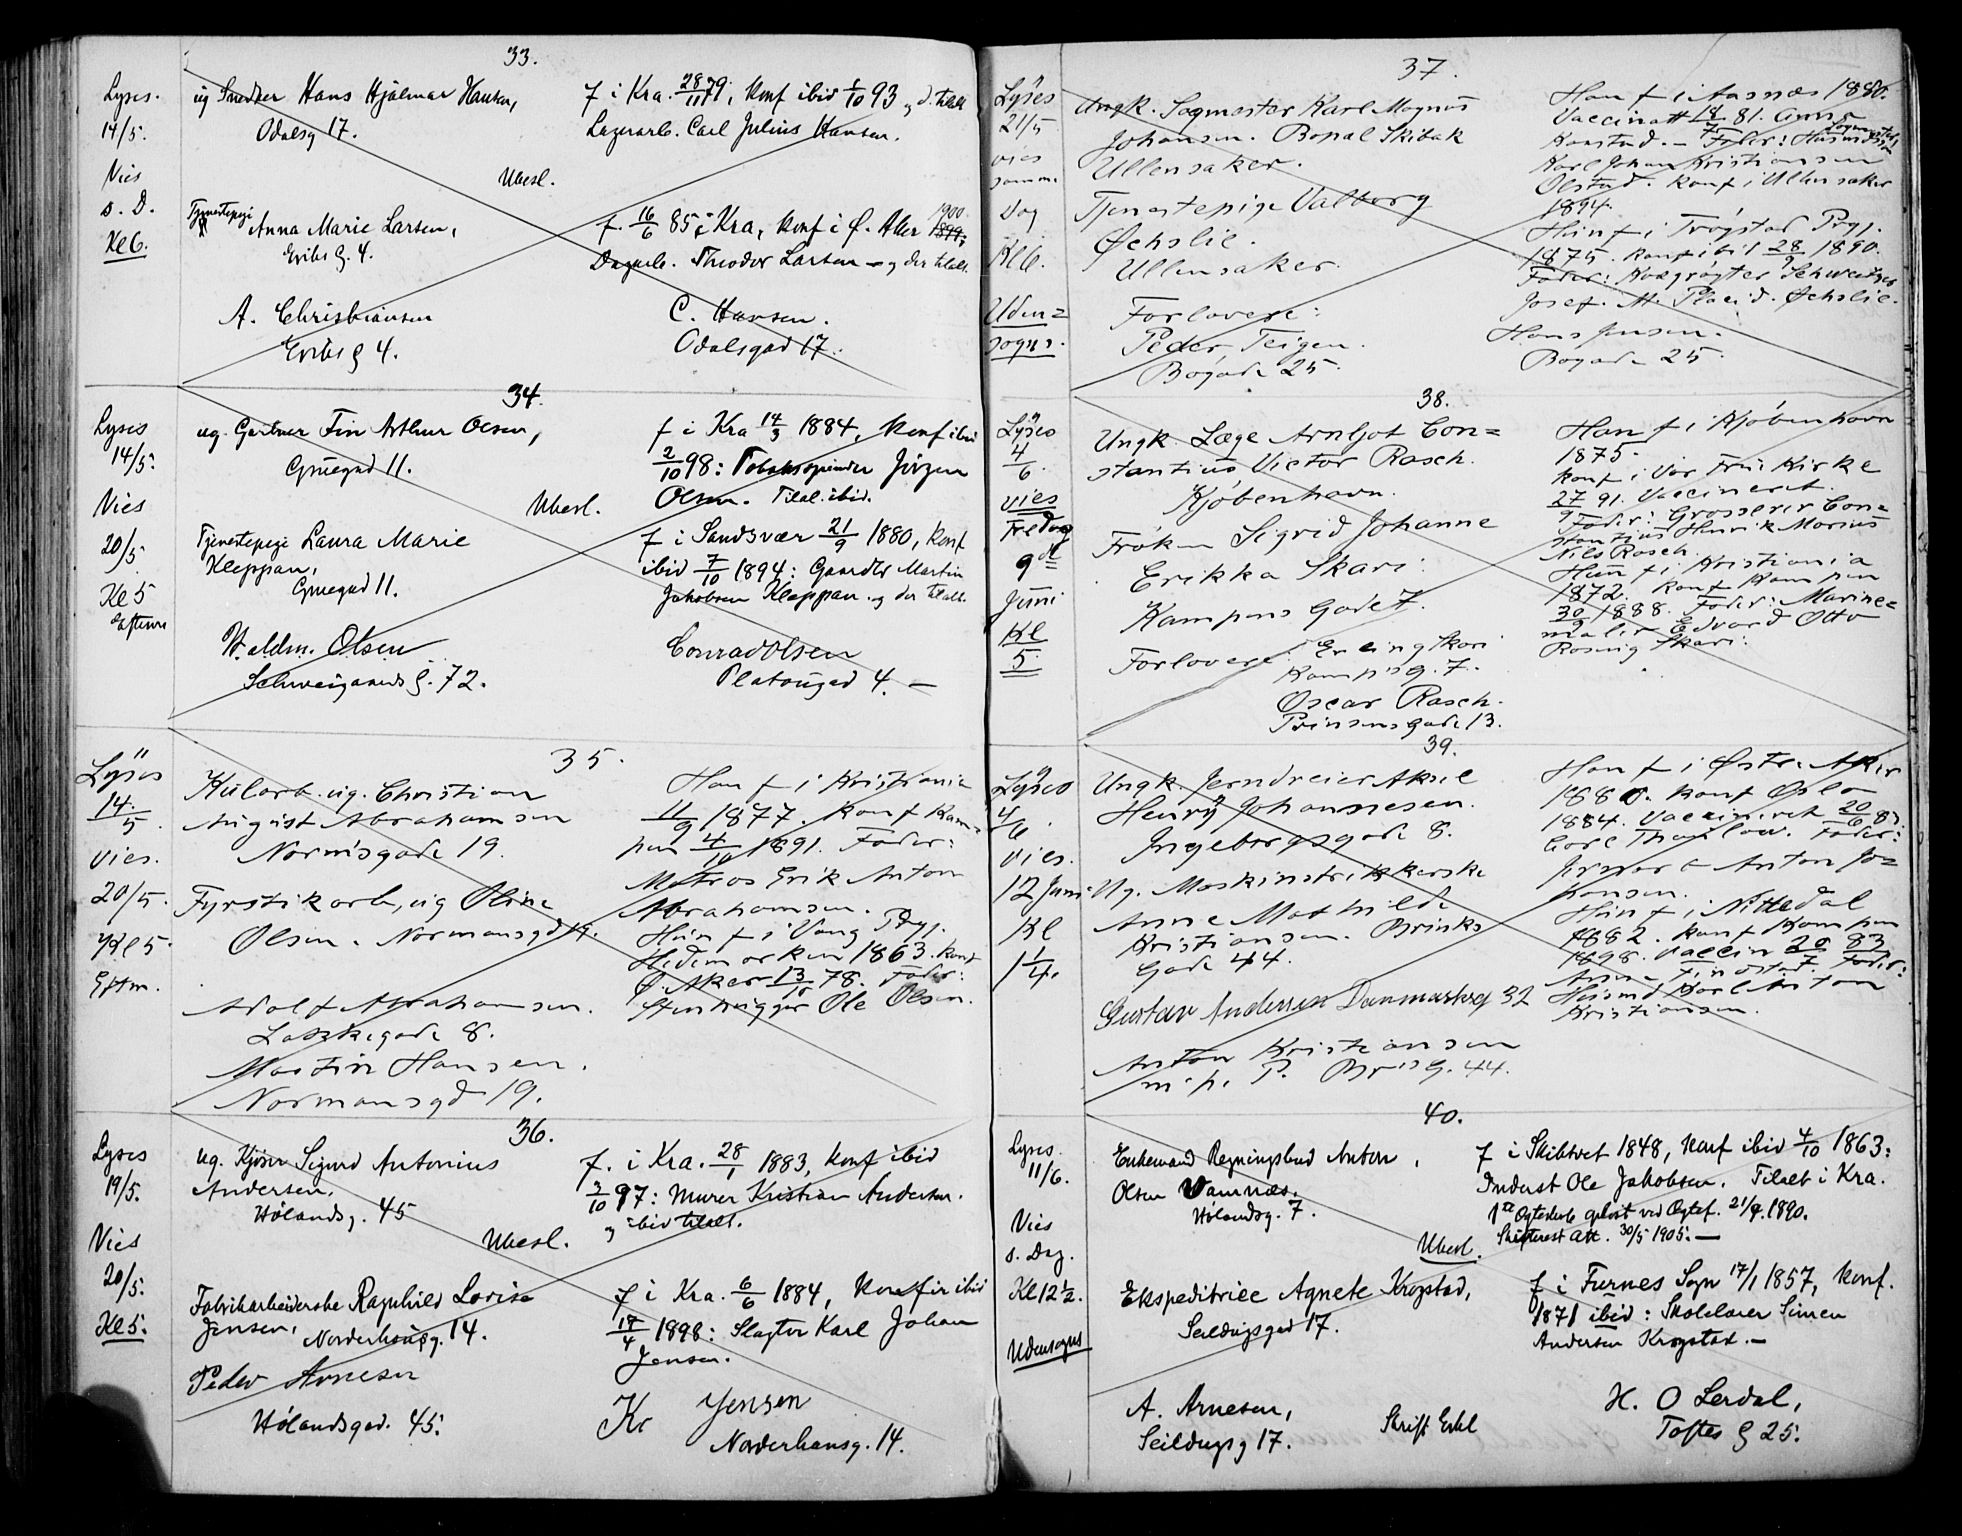 33.
Lyses.
14/5.
Vies
s. D.
Kl 6.
ug Snedker Hans Hjalmar Hansen,
Odalsg 17.
f i Kra. 28/11 79, konf ibid 1/10 93 og d. tilald
Lagerarb. Carl Julius Hansen.
Ubesl.
Tjenestepige Anna Marie Larsen,
Eriks g. 4.
f. 16/6 85 i Kra, konf i Ø. Aker 1899; 1900
Dagarb. Theodor Larsen — og der tilalt.
A. Christiansen
Eriks g 4.
C. Hansen.
Odalsgad 17.
34.
Lyses
14/5.
Vies
20/5
Kl 5
Efterm
ug. Gartner Finn Arthur Olsen,
Gruegad 11.
f i Kra 14/3 1884, Konf ibid
2/10 98: Tobakspinder Jörgen
Olsen. Tilal. ibid.
Ubesl.
Tjenestepige Laura Marie
Kleppan,
Gruegad 11.
f i Sandsvær 21/9 1880, konf
ibid 7/10 1894: Gaardbr Martin
Jakobsen Kleppan og der tilalt.
Waldm. Olsen
Schweigaards g. 72.
Conrad Olsen
Platougad 4. —
35.
Lyses
14/5.
Vies.
20/5.
Kl 5.
Eftm.
Kularb. ug. Christian
August Abrahamsen
Normisgade 19.
Han f i Kristiania
11/9 1877. Konf Kam-
pen 4/10 1891. Fader:
Matros Erik Anton
Abrahamsen.
Fyrstikarb, ug Oline
Olsen. Normansgd 19.
Hun f i Vang Prgj.
Hedemarken 1863. konf
Ø. Aker 13/10 78. Fader:
Stenhugger Ole Olsen.
Adolf Abrahamsen.
Lakkegade 8.
Martin Hansen.
Normansgd 19.
36.
Lyses
19/5.
Vies
20/5.
Kl 5.
ug. Kjörer Sigurd Antonius
Andersen.
Hölandsg. 45
f. i Kra. 28/1 1883, konf ibid
3/10 97: Murer Kristian Andersen.
og ibid tilalt.
Ubesl.
Fabrikarbeiderske Ragnhild Lovise
Jensen, Norderhousg. 14.
f i Kra. 6/6 1884, konfir ibid
17/4 1898: Slagter Karl Johan
Jensen.
Peder Arnesen
Hölandsgad. 45.
Kr Jensen
Norderhousg. 14.
37.
Lyses
21/5
vies
samme
Dag
Kl 6.
Uden-
sogns.
Ungk. Sagmester Karl Magnus
Johansen. Bopæl Skibak
Ullensaker.
Tjenestepige Valborg
Øchslie.
Ullensaker.
Forlovere:
Peder Teigen.
Bogade 25.
Han f i Aasnæs 1880.
Vaccinatt 14/7 81. Anna
Konstad. — Fader: Husmd
Karl Johan Kristiansen
Olstad. konf i Ullensaker
1894.
Hun f i Trøgstad Prgj.
1875. konf ibid 28/9 1890.
Fader: Kvægrøgter Schweitser
Josef. M. Placid. Øchslie.
Hans Jensen.
Bogade 25.
38.
Lyses
4/6.
vies
Fredag
9de
Juni
Kl
5
Ungk. Læge Arnljot Con-
stantius Victor Rasch.
Kjøbenhavn.
Frøken Sigrid Johanne
Erikka Skari.
Kampens Gade 7.
Forlovere: Erling Skari
Kamp's g. 7.
Oscar Rasch.
Prinsensgade 13.
Han f i Kjøbenhavn
1875.
konf i Vor Frue Kirke
27/9 91. Vaccineret.
Fader: Grosserer Con-
stantius Henrik Marius
Nils Rasch.
Hun f i Kristiania
1872. konf Kampen
30/9 1888. Fader: Marine-
maler Edvard Otto
Roming Skari.
39.
Lyses
4/6.
vies.
12 Juni
Kl
1 1/4.
Ungk. Jerndreier Aksel
Henry Johannesen.
Ingeborgsgade 8.
Ug. Maskinstrikkerske
Anne Mathilde
Kristiansen. Brinks
Gade 44.
Gustav Andersen Danmarksg 32
Anton Kristiansen
m. p. P. Br's G. 44.
Han f i Østre Aker
1880. konf Oslo
1884. Vaccineret 20/6 83
Carl Thaulow. Fader:
Anton Jo-
hansen.
Hun f i Nittedal
1882. konf Kampen
1898. Vaccin 20/7 83
Fader:
Husmd Karl Anton
Kristiansen.
40.
Lyses.
11/6.
Vies
s. Dag.
Kl 12 1/2.
Udensogns
Enkemand Regningsbud Anton
Olsen Vamnæs.
Hølandsg. 7.
f i Skibtvet 1848, Konf ibid 4/10 1863:
Inderst Ole Jakobsen. Tilalt i Kra.
1ste Ægteskab opløst ved Ægtef. 21/9.1890.
Skifterest Att. 30/5 1905. —
Ubesl.
Ekspeditrice Agnete Krogstad,
Seildugsgad 17.
f i Furnes Sogn 17/1 1857, konf.
1871 ibid: Skolelærer Simen
Andersen Krogstad. —
A. Arnesen,
Seildugsg 17.
Skrift Erkl
H. O Lerdal,
Toftes g 25.